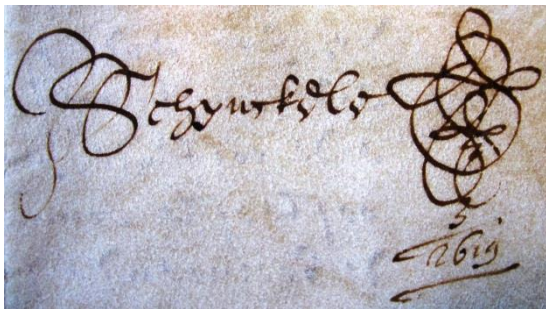 Schynckele
5
1619